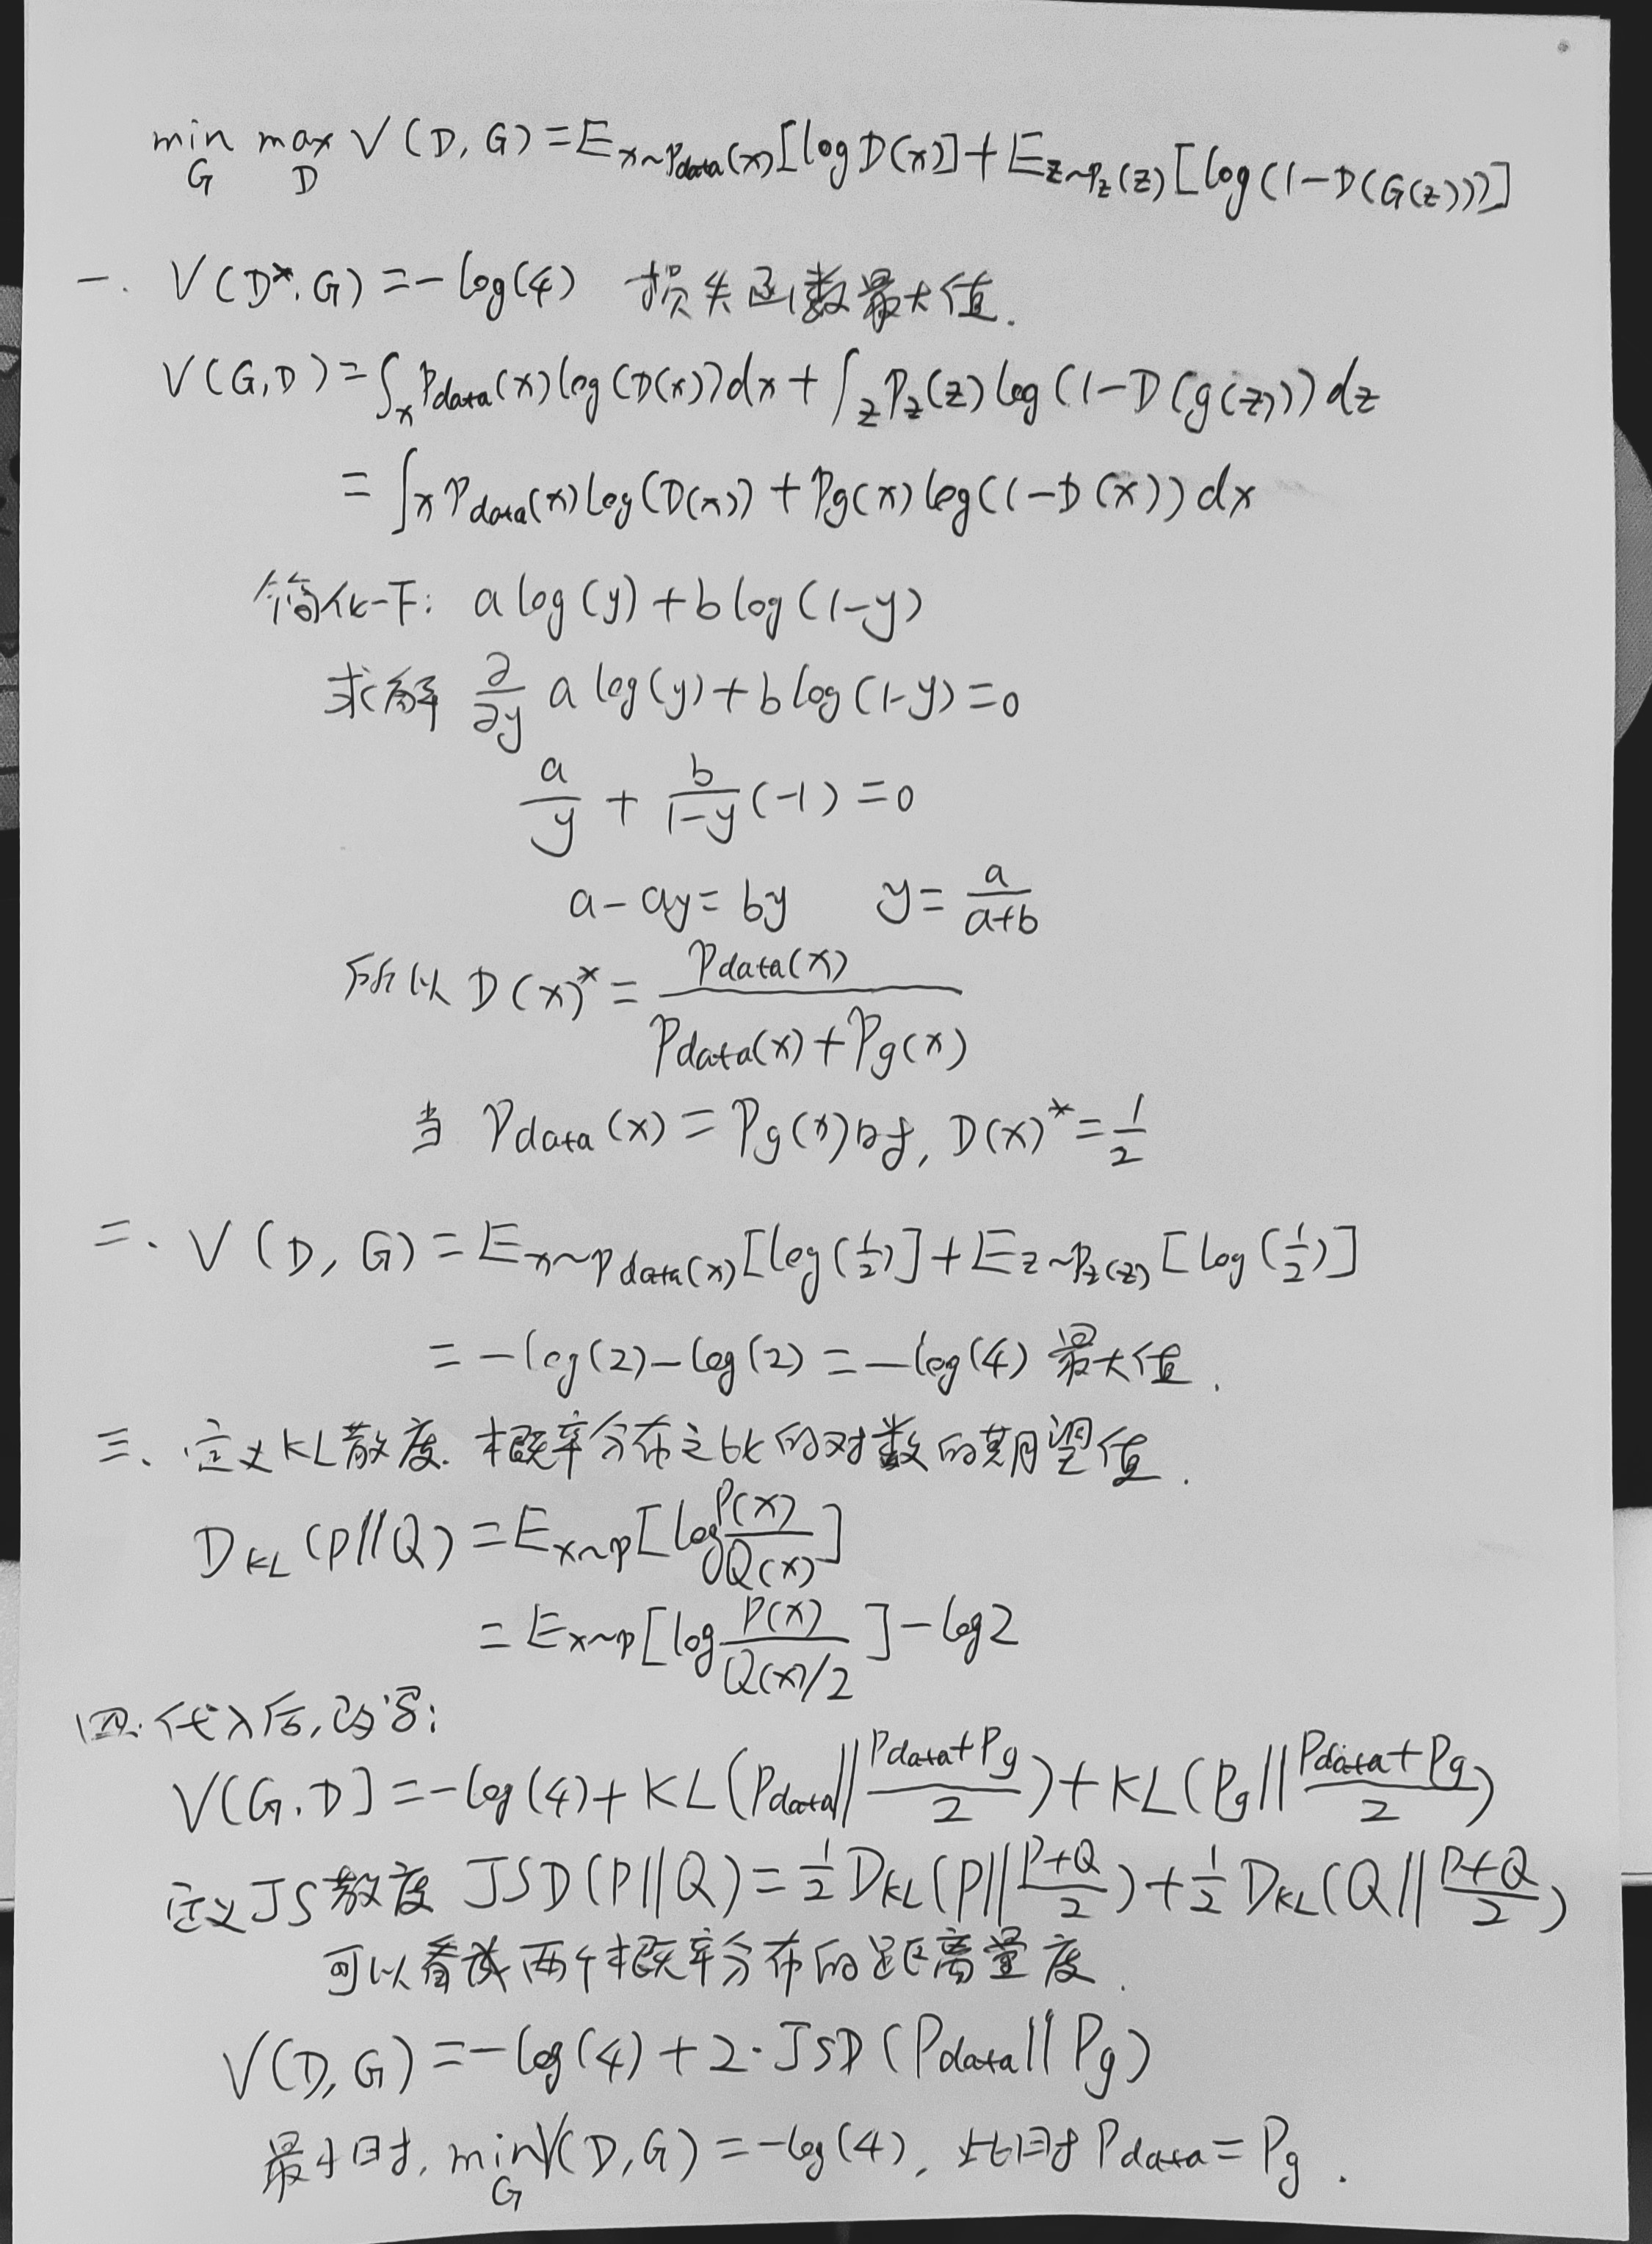 min_G max_D V(D, G) = E_{x∼Pdata(x)}[log D(x)] + E_{z∼Pz(z)}[log(1-D(G(z)))]
一. V(D*, G) = -log(4) 损失函数最大值.
V(G,D) = ∫_x Pdata(x) log(D(x))dx + ∫_z Pz(z) log(1-D(g(z)))dz
= ∫_x Pdata(x) log(D(x)) + Pg(x) log(1-D(x)) dx
简化一下: a log(y) + b log(1-y)
求解 ∂/∂y a log(y) + b log(1-y) = 0
a/y + b/(1-y) (-1) = 0
a - ay = by y = a/(a+b)
所以 D(x)* = Pdata(x)/(Pdata(x)+Pg(x))
当 Pdata(x) = Pg(x)时, D(x)* = 1/2
二. V(D, G) = E_{x∼Pdata(x)}[log(1/2)] + E_{z∼Pz(z)}[log(1/2)]
= -log(2) - log(2) = -log(4) 最大值.
三. 定义KL散度. 概率分布之比的对数的期望值.
D_KL(P||Q) = E_{x∼p}[log P(x)/Q(x)]
= E_{x∼p}[log P(x)/(Q(x)/2)] - log2
四. 代入后, 改写:
V(G.D] = -log(4) + KL(Pdata||(Pdata+Pg)/2) + KL(Pg||(Pdata+Pg)/2)
定义JS散度 JSD(P||Q) = 1/2 D_KL(P||(P+Q)/2) + 1/2 D_KL(Q||(P+Q)/2)
可以看成两个概率分布的距离量度.
V(D, G) = -log(4) + 2·JSD(Pdata||Pg)
最小时, min_G V(D, G) = -log(4), 此时 Pdata = Pg.